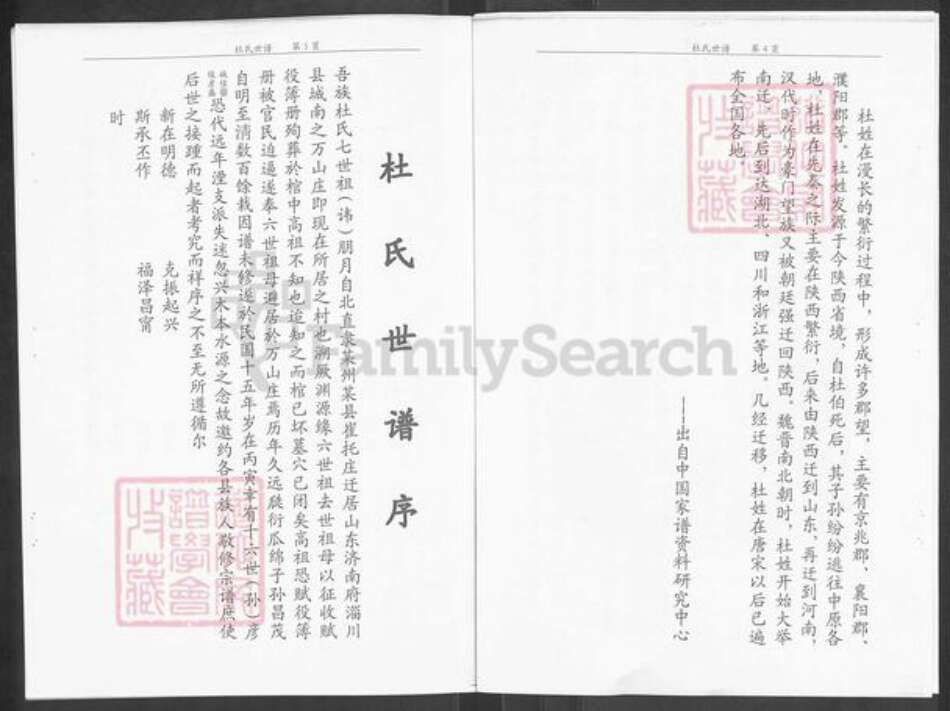 杜氏世谱 第4页
杜姓在漫长的繁衍过程中，形成许多郡望，主要有京兆郡、襄阳郡、
濮阳郡等。杜姓发源于今陕西省境，自杜伯死后，其子孙纷纷逃往中原各
地，杜姓在先秦之际主要在陕西繁衍，后来由陕西迁到山东，再迁到河南，
汉代时作为豪门望族又被朝廷强迁回陕西。魏晋南北朝时，杜姓开始大举
南迁，先后到达湖北、四川和浙江等地。几经迁移，杜姓在唐宋以后已遍
布全国各地。
——出自中国家谱资料研究中心
杜氏世谱 第3页
杜氏世谱序
吾族杜氏七世祖(讳)朋月自北直隶莱州莱县崔托庄迁居山东济南府淄川
县城南之万山庄即现在所居之村也溯厥渊源缘六世祖去世祖母以征收赋
役簿册殉葬於棺中高祖不知也迨知之而棺已坏墓穴已闭矣高祖恐赋役簿
册被官民迫逼遂奉六世祖母避居於万山庄焉历年久远瓞衍瓜绵子孙昌茂
自明至清数百馀载因谱未修遂於民国十五年岁在丙寅幸有十六世(孙)彦
恐代远年湮支派失迷忽兴木本水源之念故邀约各县族人敬修宗谱庶使
后世之接踵而起者考究而祥序之不至无所遵循尔
新在明德 克振起兴
斯承丕作 福泽昌甯
时
收藏
谱学会
FamilySearch